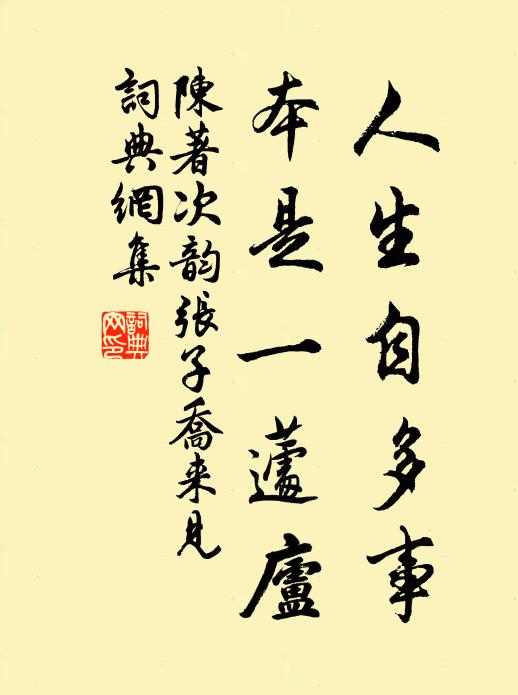 人生自多事
本是一蘧廬
陳著次韵張子喬来見
詞典網集
詞典网印